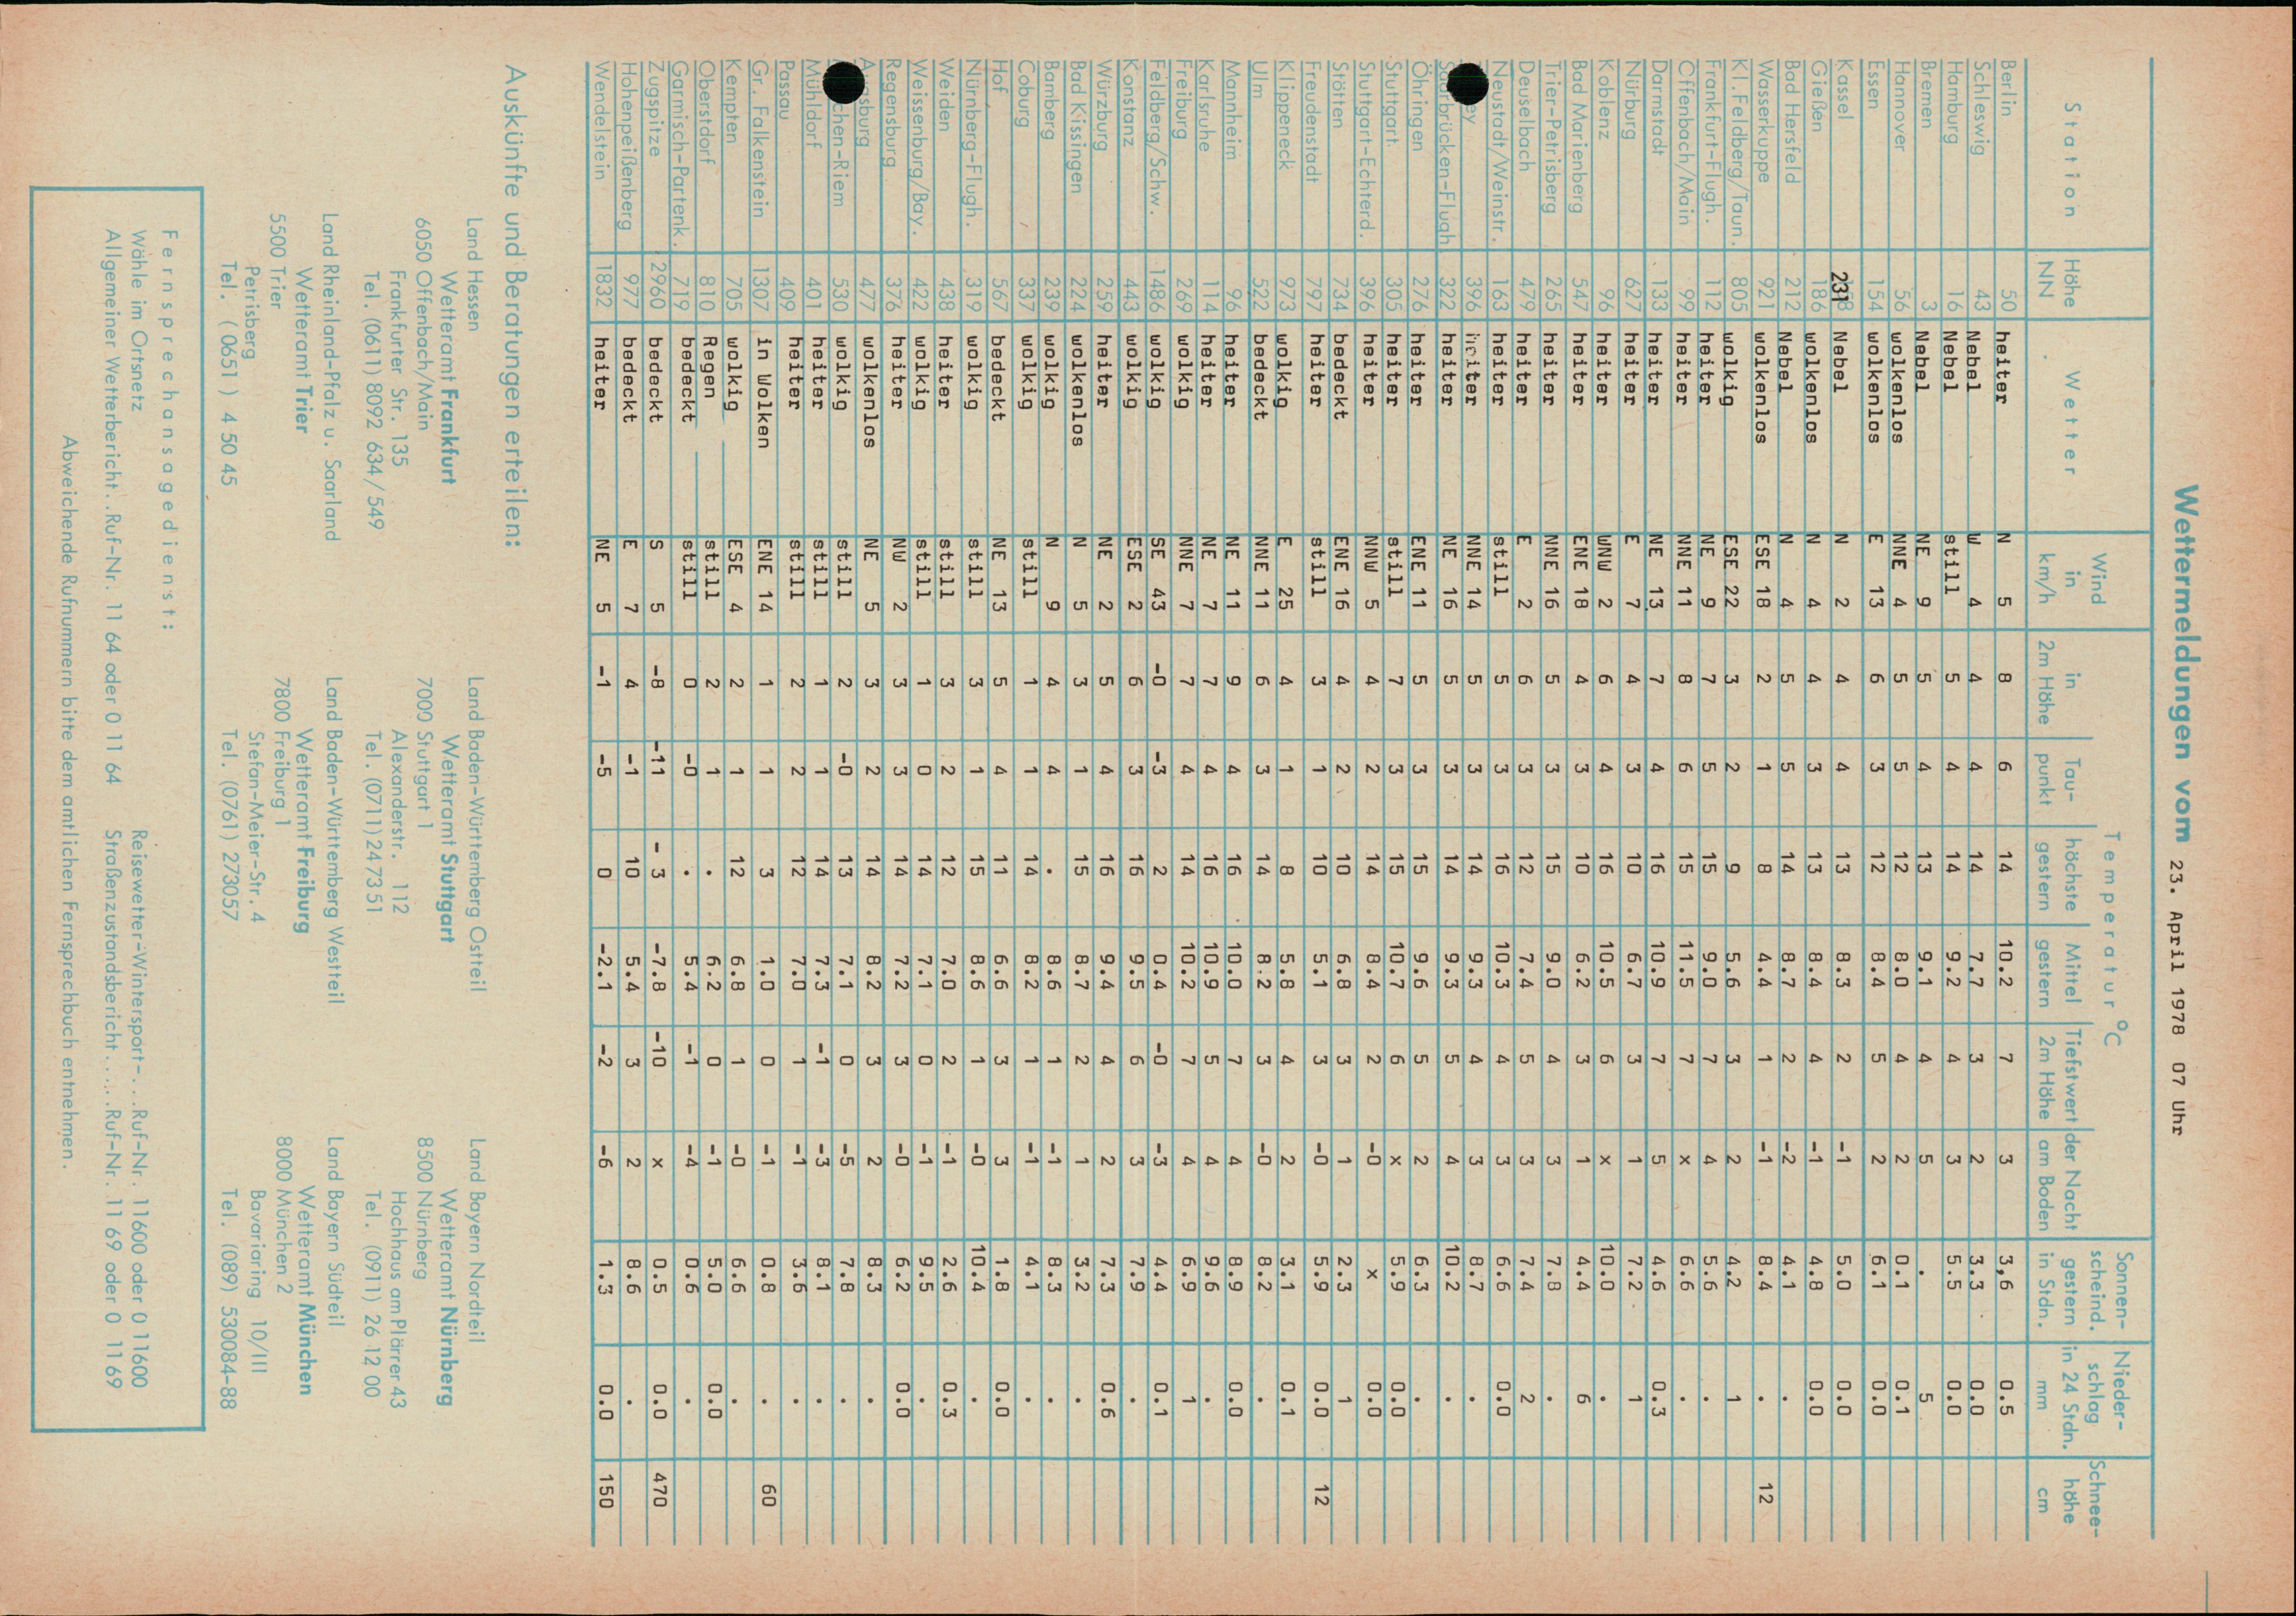 Wettermeldungen vom 23. April 1978 07 Uhr
Station Höhe NN Wetter Wind in km/h Temperatur °C Sonnen- scheind. gestern in Stdn. Nieder- schlag in 24 Stdn. mm Schnee- höhe cm
in 2m Höhe Tau- punkt höchste gestern Mittel gestern Tiefstwert der Nacht 2m Höhe am Boden
Berlin 50 heiter N 5 8 6 14 10.2 7 3 3,6 0.5
Schleswig 43 Nebel W 4 4 4 14 7.7 3 2 3.3 0.0
Hamburg 16 Nebel still 5 4 14 9.2 4 3 5.5 0.0
Bremen 3 Nebel NE 9 5 4 13 9.1 4 5 . 5
Hannover 56 wolkenlos NNE 4 5 5 12 8.0 4 2 0.1 0.1
Essen 154 wolkenlos E 13 6 3 12 8.4 5 2 6.1 0.0
Kassel 231 Nebel N 2 4 4 13 8.3 2 -1 5.0 0.0
Gießen 186 wolkenlos N 4 4 3 13 8.4 4 -1 4.8 0.0
Bad Hersfeld 212 Nebel N 4 5 5 14 8.7 2 -2 4.1 .
Wasserkuppe 921 wolkenlos ESE 18 2 1 8 4.4 1 -1 8.4 . 12
Kl.Feldberg/Taun. 805 wolkig ESE 22 3 2 9 5.6 3 2 4.2 1
Frankfurt-Flugh. 112 heiter NE 9 7 5 15 9.0 7 4 5.6 .
Offenbach/Main 99 heiter NNE 11 8 6 15 11.5 7 x 6.6 .
Darmstadt 133 heiter NE 13 7 4 16 10.9 7 5 4.6 0.3
Nürburg 627 heiter E 7 4 3 10 6.7 3 1 7.2 1
Koblenz 96 heiter WNW 2 6 4 16 10.5 6 x 10.0 .
Bad Marienberg 547 heiter ENE 18 4 3 10 6.2 3 1 4.4 6
Trier-Petrisberg 265 heiter NNE 16 5 3 15 9.0 4 3 7.8 .
Deuselbach 479 heiter E 2 6 3 12 7.4 5 3 7.4 2
Neustadt/Weinstr. 163 heiter still 5 3 16 10.3 4 3 6.6 0.0
ey 396 heiter NNE 14 5 3 14 9.3 4 3 8.7 .
Saarbrücken-Flugh. 322 heiter NE 16 5 3 14 9.3 5 4 10.2 .
Öhringen 276 heiter ENE 11 5 3 15 9.6 5 2 6.3 .
Stuttgart 305 heiter still 7 3 15 10.7 6 x 5.9 0.0
Stuttgart-Echterd. 396 heiter NNW 5 4 2 14 8.4 2 -0 x 0.0
Stötten 734 bedeckt ENE 16 4 2 10 6.8 3 1 2.3 1
Freudenstadt 797 heiter still 3 1 10 5.1 3 -0 5.9 0.0 12
Klippeneck 973 wolkig E 25 4 1 8 5.8 4 2 3.1 0.1
Ulm 522 bedeckt NNE 11 6 3 14 8.2 3 -0 8.2 .
Mannheim 96 heiter NE 11 9 4 16 10.0 7 4 8.9 0.0
Karlsruhe 114 heiter NE 7 7 4 16 10.9 5 4 9.6 .
Freiburg 269 wolkig NNE 7 7 4 14 10.2 7 4 6.9 1
Feldberg/Schw. 1486 wolkig SE 43 -0 -3 2 0.4 -0 -3 4.4 0.1
Konstanz 443 wolkig ESE 2 6 3 16 9.5 6 3 7.9 .
Würzburg 259 heiter NE 2 5 4 16 9.4 4 2 7.3 0.6
Bad Kissingen 224 wolkenlos N 5 3 1 15 8.7 2 1 3.2 .
Bamberg 239 wolkig N 9 4 4 . 8.6 1 -1 8.3 .
Coburg 337 wolkig still 1 1 14 8.2 1 -1 4.1 .
Hof 567 bedeckt NE 13 5 4 11 6.6 3 3 1.8 0.0
Nürnberg-Flugh. 319 wolkig still 3 1 15 8.6 1 -0 10.4 .
Weiden 438 heiter still 3 2 12 7.0 2 -1 2.6 0.3
Weissenburg/Bay. 422 wolkig still 1 0 14 7.1 0 -1 9.5 .
Regensburg 376 heiter NW 2 3 3 14 7.2 3 -0 6.2 0.0
A sburg 477 wolkenlos NE 5 3 2 14 8.2 3 2 8.3 .
chen-Riem 530 wolkig still 2 -0 13 7.1 0 -5 7.8 .
Mühldorf 401 heiter still 1 1 14 7.3 -1 -3 8.1 .
Passau 409 heiter still 2 2 12 7.0 1 -1 3.6 .
Gr. Falkenstein 1307 in Wolken ENE 14 1 1 3 1.0 0 -1 0.8 . 60
Kempten 705 wolkig ESE 4 2 1 12 6.8 1 -0 6.6 .
Oberstdorf 810 Regen still 2 1 . 6.2 0 -1 5.0 0.0
Garmisch-Partenk. 719 bedeckt still 0 -0 . 5.4 -1 -4 0.6 .
Zugspitze 2960 bedeckt S 5 -8 -11 - 3 -7.8 -10 x 0.5 0.0 470
Hohenpeißenberg 977 bedeckt E 7 4 -1 10 5.4 3 2 8.6 .
Wendelstein 1832 heiter NE 5 -1 -5 0 -2.1 -2 -6 1.3 0.0 150
Auskünfte und Beratungen erteilen:
Land Hessen
Wetteramt Frankfurt
6050 Offenbach/Main
Frankfurter Str. 135
Tel. (0611) 8092 634/ 549
Land Baden-Württemberg Ostteil
Wetteramt Stuttgart
7000 Stuttgart 1
Alexanderstr. 112
Tel. (0711) 24 73 51
Land Bayern Nordteil
Wetteramt Nürnberg
8500 Nürnberg
Hochhaus am Plärrer 43
Tel. (0911) 26 12 00
Land Rheinland-Pfalz u. Saarland
Wetteramt Trier
5500 Trier
Petrisberg
Tel. (0651) 4 50 45
Land Baden-Württemberg Westteil
Wetteramt Freiburg
7800 Freiburg 1
Stefan-Meier-Str. 4
Tel. (0761) 273057
Land Bayern Südteil
Wetteramt München
8000 München 2
Bavariaring 10/III
Tel. (089) 530084-88
Fernsprechansagedienst:
Wähle im Ortsnetz Reisewetter-Wintersport-. . .Ruf-Nr. 11600 oder 0 11600
Allgemeiner Wetterbericht. .Ruf-Nr. 11 64 oder 0 11 64 Straßenzustandsbericht. . . . .Ruf-Nr. 11 69 oder 0 11 69
Abweichende Rufnummern bitte dem amtlichen Fernsprechbuch entnehmen.